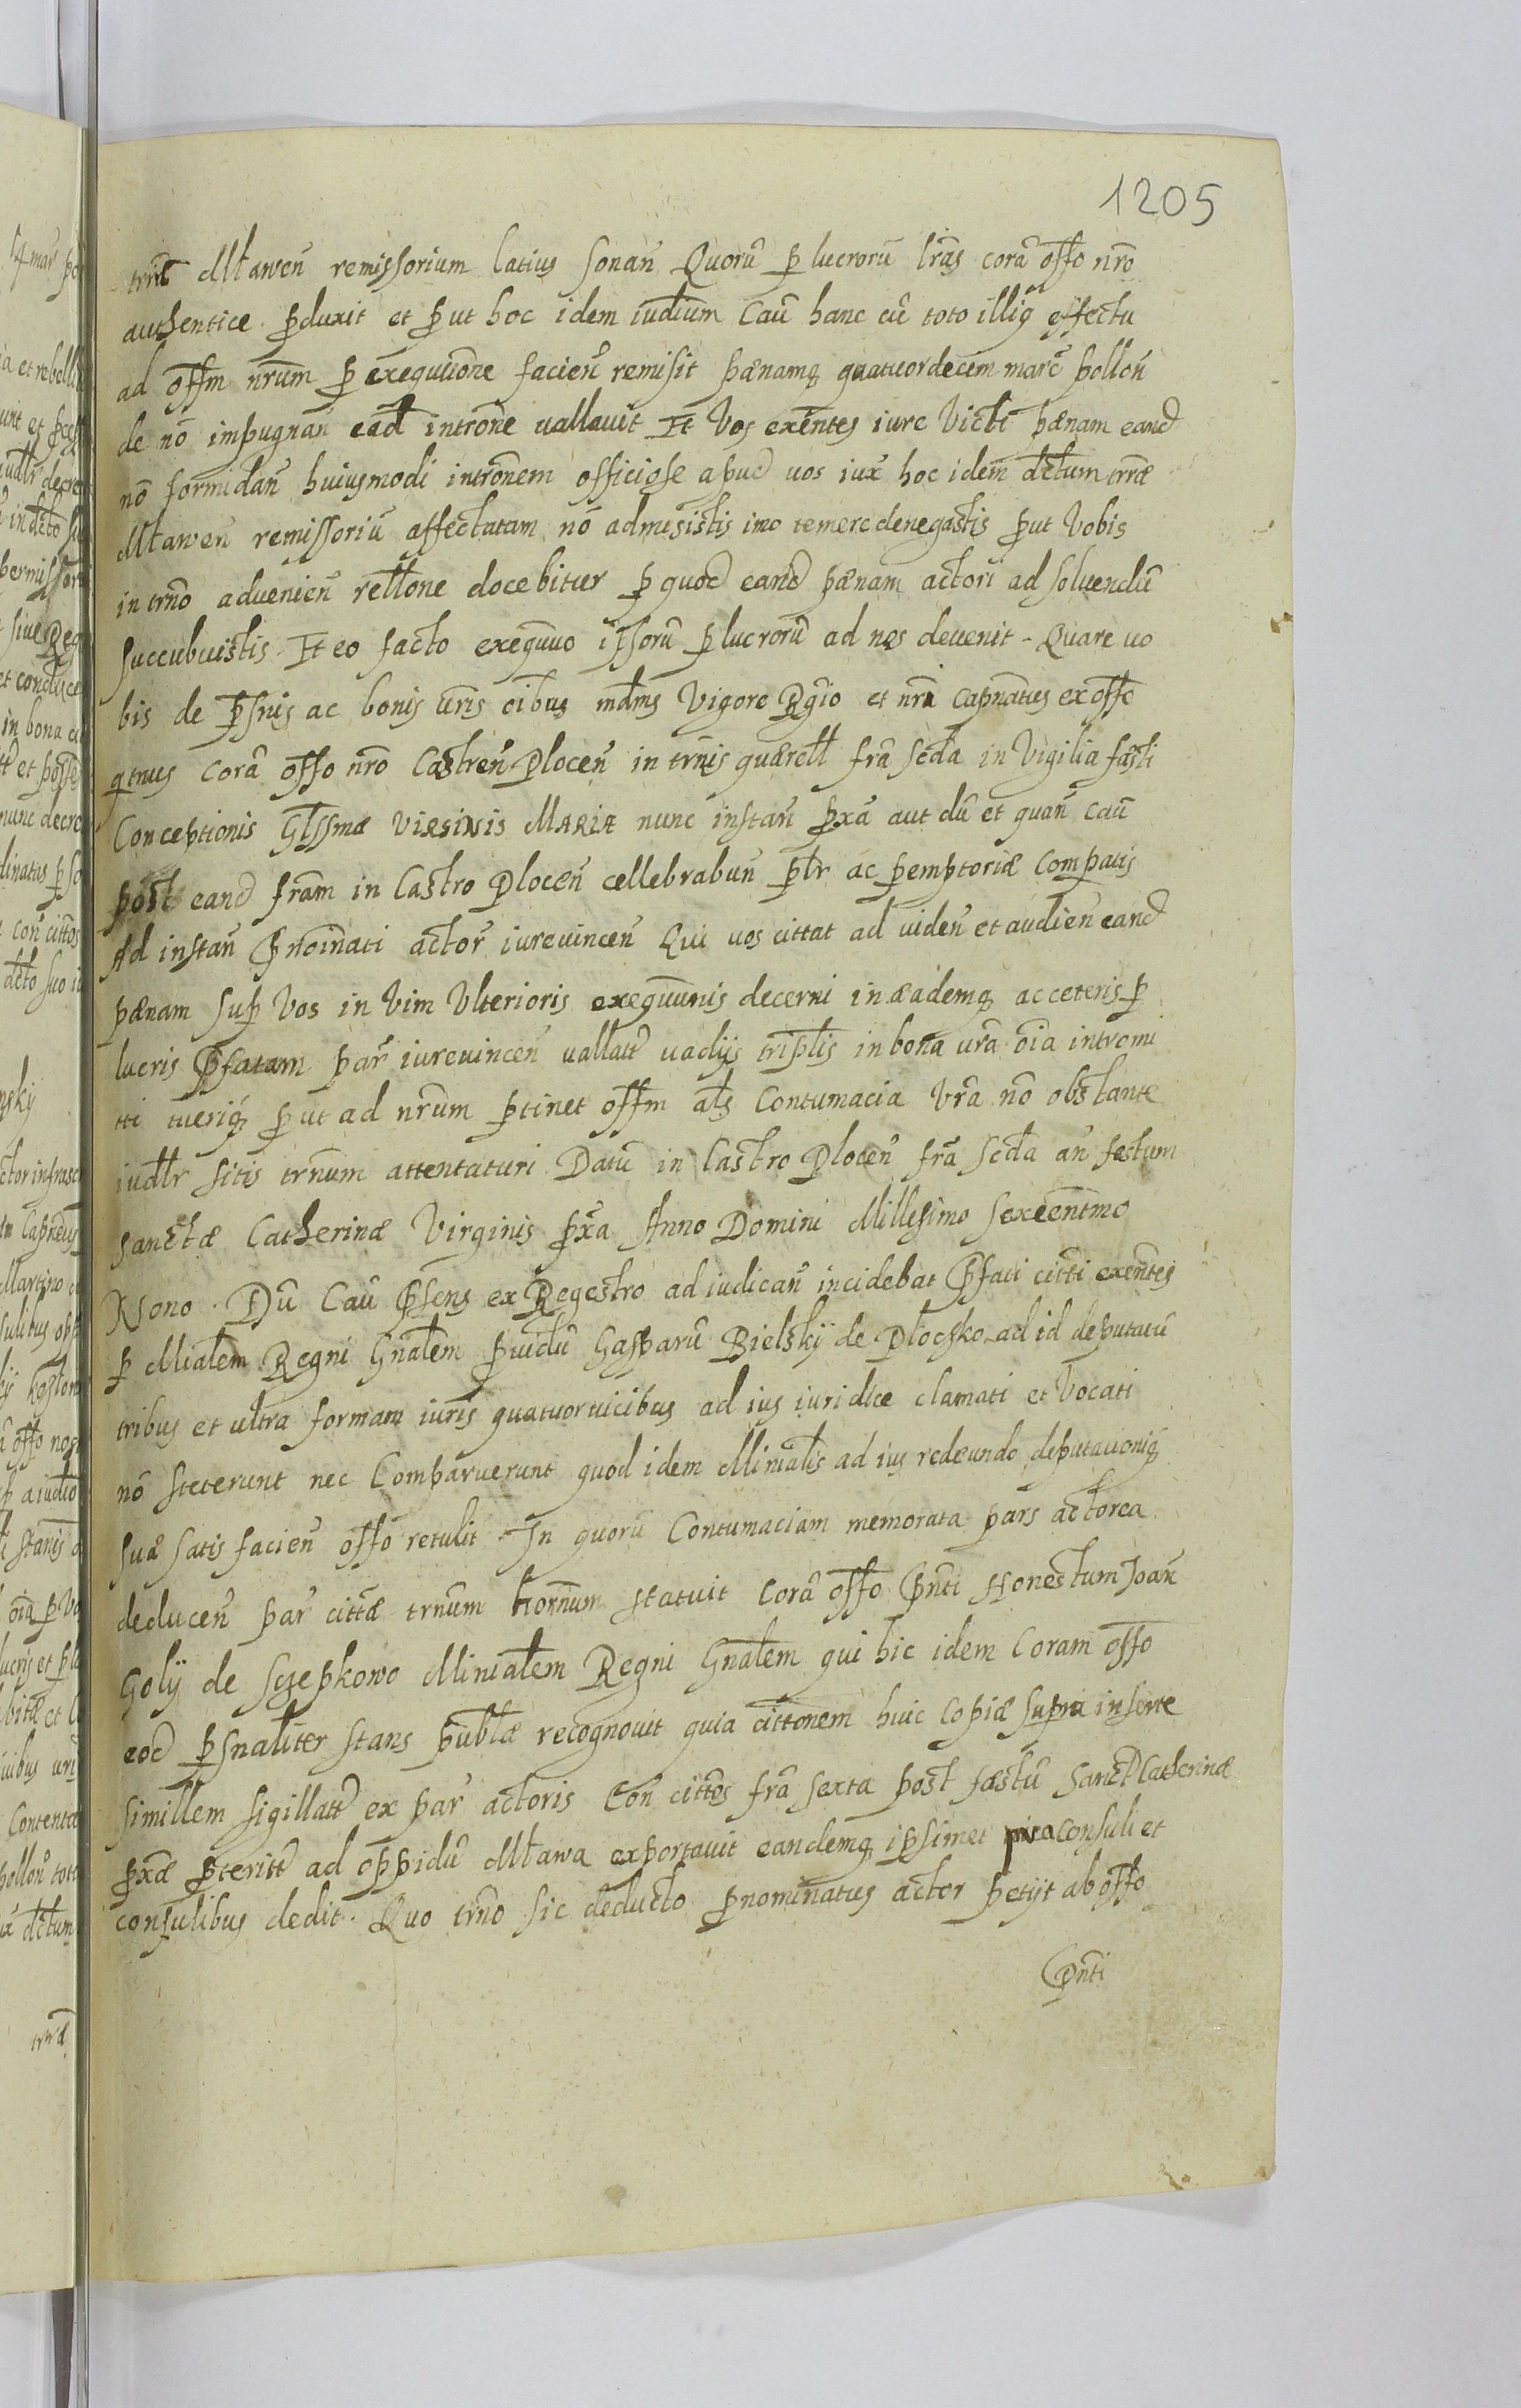 1205
trrtis Mławeñ remissorium latius sonañ Quorũ p lucrorũ lrãs corã offo nro
authentice pduxit et put hoc idem iudium Cauã hanc cũ toto illiq effectu
ad offm nrum p exequutione facieñ remisit pænamq quatuordecim marc pollon
de nõ impugnañ ead introne vallavit Et Vos exentes iure Victi pænam eand
nõ formidañ huiusmodi intronem officiose apud vos iux hoc idem dctum trræ
Mławeñ remissoriũ affectatam nõ admisistis imo temere denegastis put Vobis
in trno advenien rellone docebitur p quod eand pænam actori ad solvendũ
succubuistis Et eo facto exequuo ipsorũ p lucrorũ ad nos devenit. Quare vo
bis de psnis ac bonis vris oibus mdms Vigore Rgio et nri Capnatus ex offo
qtnus Corã offo nro Castreñ Ploceñ in trnis quærell frã scda in Vigilia fæsti
Conceptionis Glssmæ VIRGINIS MARIÆ nunc instañ pxã aut dũ et quañ Cauã
post eand fram in Castro Ploceñ cellebrabuñ plr ac pemptoriæ Compatis
Ad instañ Pnominati actor iurevinceñ Qui vos cittat ad videñ et audieñ eand
pænam sup Vos in Vim Ulterioris exequunis decerni in æademq ac ceteris p
lucris Pfatam par iurevinceñ vallatt vadijs triplis in bona vra oia intromi
tti tueriq put ad nrum ptinet offm als Contumacia Vra nõ obstante
iudlr sitis trnum attentaturi Datũ in Castro Ploceñ frã scda añ festum
Sanctæ Catherinæ Virginis pxa Anno Domini Millesimo Sexcentmo
Nono. Dũ Cauã Psens ex Regestro ad iudicañ incidebat Pfati citti exentes
p Mialem Regni Gnalem pvidũ Gasparũ Bielskÿ de Płocsko ad id deputatũ
tribus et ultra formam iuris quatuor vicibus ad ius iuridice clamati et Vocati
nõ steterunt nec Comparuerunt quod idem Minialis ad ius redeundo deputationiq
suæ satis facieñ offo retulit. In quorũ Contumaciam memorata pars actorea
deduceñ par cittæ trnum hornum statuit Corã offo Pnti Honestum Joañ
Golÿ de Sczepkowo Minialem Regni Gnalem qui hic idem Coram offo
eod psnaliter stans publæ recognovit quia cittonem huic Copiæ supra insertæ
simillem sigillatt ex par actoris Con cittos frã sexta post fæstũ Sanct Catherinæ
pxæ pteritt ad oppidũ Mława exportavit eandemq ipsimet pro Consuli et
consulibus dedit. Quo trno sic deducto pnominatus actor petijt ab offo
Pnti